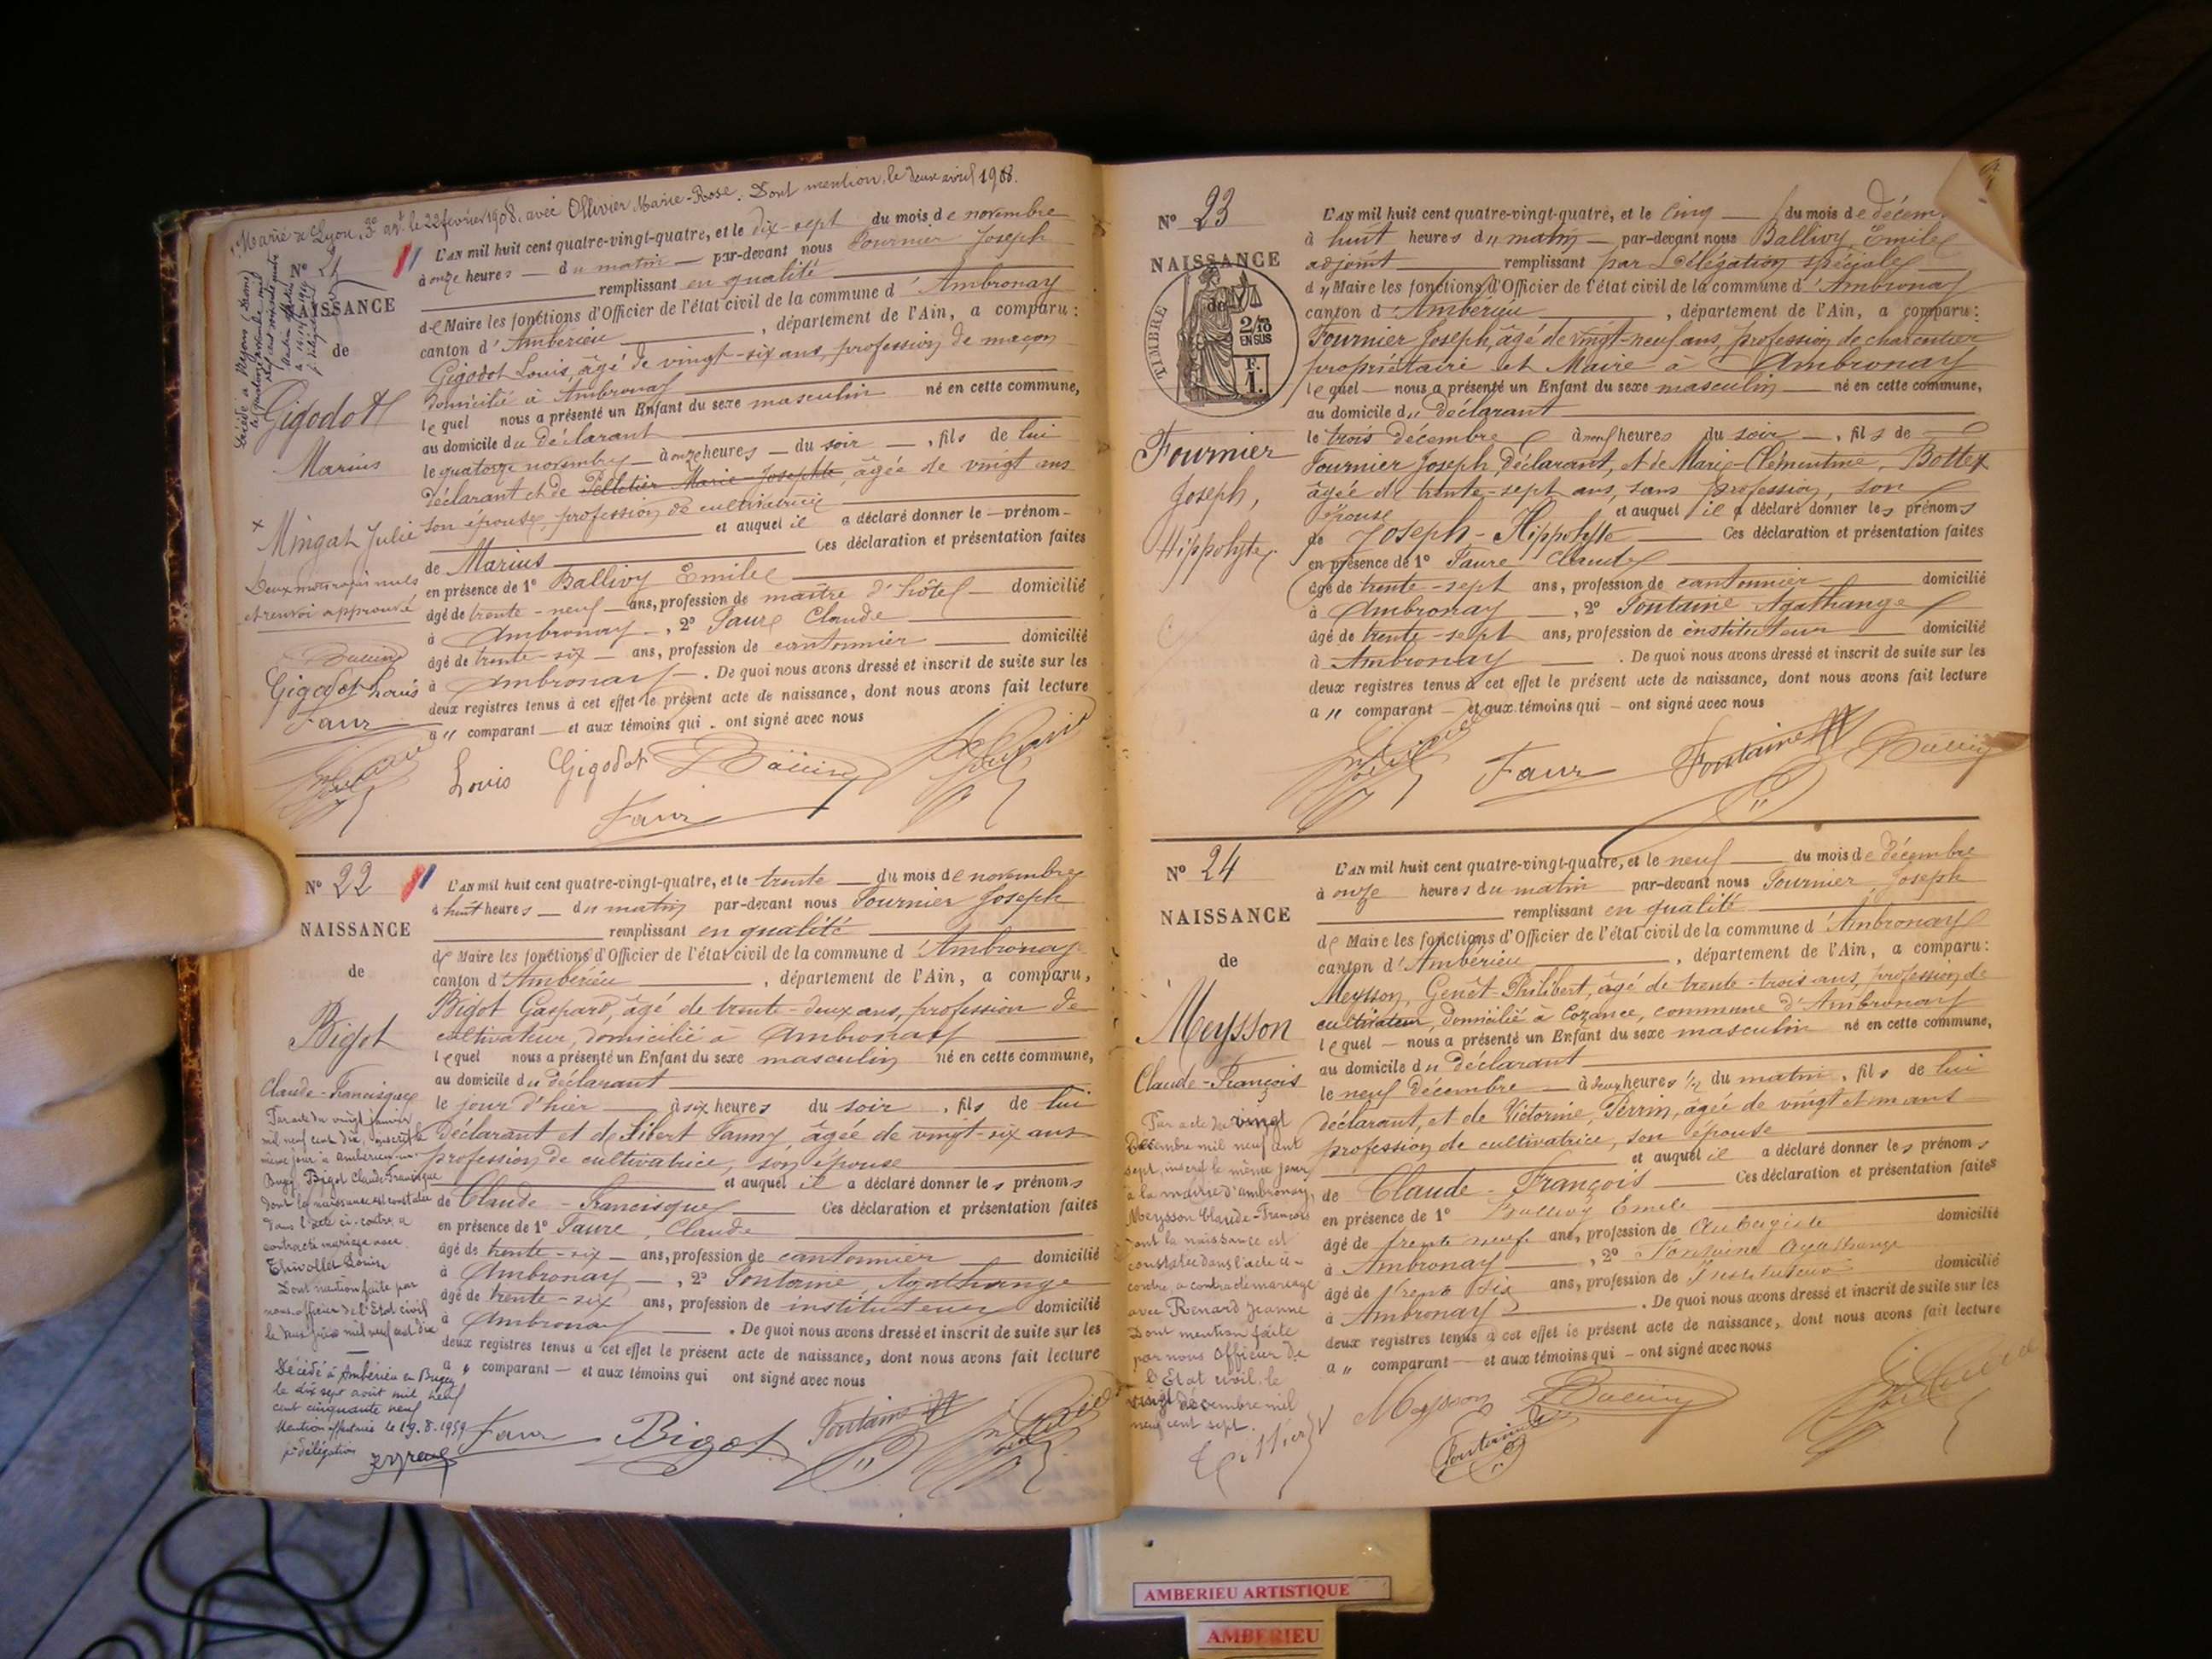 Marié à Lyon, 3e arr. le 22 février 1908, avec Ollivier Marie-Rose. Dont mention, le deux avril 1908.
Nº 21
NAISSANCE
de
Gigodot
Marius
× Mingat Julie
Deux mots rayés nuls
et renvoi approuvé
Gigodot Louis
Faur
L'AN mil huit cent quatre-vingt-quatre, et le dix-sept du mois de novembre
à onze heures du matin par-devant nous Fournier Joseph
remplissant en qualité
de Maire les fonctions d'Officier de l'état civil de la commune d'Ambronay
canton d'Ambérieu, département de l'Ain, a comparu:
Gigodot Louis, âgé de vingt-six ans, profession de maçon
domicilié à Ambronay
lequel nous a présenté un Enfant du sexe masculin né en cette commune,
au domicile du déclarant
le quatorze novembre à onze heures du soir, fils de lui
déclarant et de Pelletier Marie-Josephte, âgée de vingt ans
son épouse, profession de cultivatrice
et auquel il a déclaré donner le prénom
de Marius Ces déclaration et présentation faites
en présence de 1º Ballivy Emile
âgé de trente-neuf ans, profession de maître d'hôtel domicilié
à Ambronay, 2º Faure Claude
âgé de trente-six ans, profession de cantonnier domicilié
à Ambronay. De quoi nous avons dressé et inscrit de suite sur les
deux registres tenus à cet effet le présent acte de naissance, dont nous avons fait lecture
a " comparant et aux témoins qui ont signé avec nous
Louis Gigodot
Faur
Nº 22
NAISSANCE
de
Bigot
Claude-Francisque
Par acte du vingt janvier
mil neuf cent dix, inscrit le
même jour à Ambérieu-en-
Bugey, Bigot Claude-Francisque
dont la naissance est constatée
dans l'acte ci-contre, a
contracté mariage avec
Thivollet Louise
Dont mention faite par
nous officier de l'Etat civil
Décédé à Ambérieu en Bugey
le dix sept août mil neuf
cent cinquante neuf
Mention effectuée le 19.8.1959
pr délégation
L'AN mil huit cent quatre-vingt-quatre, et le trente du mois de novembre
à huit heures du matin par-devant nous Fournier Joseph
remplissant en qualité
de Maire les fonctions d'Officier de l'état civil de la commune d'Ambronay
canton d'Ambérieu, département de l'Ain, a comparu,
Bigot Gaspard, âgé de trente-deux ans, profession de
cultivateur, domicilié à Ambronay
lequel nous a présenté un Enfant du sexe masculin né en cette commune,
au domicile du déclarant
le jour d'hier à six heures du soir, fils de lui
déclarant et de Libert Fanny, âgée de vingt-six ans
profession de cultivatrice, son épouse
et auquel il a déclaré donner les prénoms
de Claude-Francisque Ces déclaration et présentation faites
en présence de 1º Faure, Claude
âgé de trente-six ans, profession de cantonnier domicilié
à Ambronay, 2º Fontaine Agathange
âgé de trente-six ans, profession de instituteur domicilié
à Ambronay. De quoi nous avons dressé et inscrit de suite sur les
deux registres tenus à cet effet le présent acte de naissance, dont nous avons fait lecture
a " comparant et aux témoins qui ont signé avec nous
Faur Bigot Fontaine
Nº 23
NAISSANCE
de
TIMBRE
2/10
EN SUS
F.
1.
Fournier
Joseph,
Hippolyte
L'AN mil huit cent quatre-vingt-quatre, et le cinq du mois de décem
à huit heures du matin par-devant nous Ballivy, Emile
adjoint remplissant par Délégation spéciale
d " Maire les fonctions d'Officier de l'état civil de la commune d'Ambronay
canton d'Ambérieu, département de l'Ain, a comparu:
Fournier Joseph, âgé de vingt-neuf ans, profession de charcutier
propriétaire et Maire à Ambronay
lequel nous a présenté un Enfant du sexe masculin né en cette commune,
au domicile d " déclarant
le trois décembre à neuf heures du soir, fils de
Fournier Joseph, déclarant, et de Marie-Clémentine, Bottex
âgée de trente-sept ans, sans profession, son
épouse et auquel il a déclaré donner les prénoms
de Joseph-Hippolyte Ces déclaration et présentation faites
en présence de 1º Faure Claude
âgé de trente-sept ans, profession de cantonnier domicilié
à Ambronay, 2º Fontaine Agathange
âgé de trente-sept ans, profession de instituteur domicilié
à Ambronay. De quoi nous avons dressé et inscrit de suite sur les
deux registres tenus à cet effet le présent acte de naissance, dont nous avons fait lecture
a " comparant et aux témoins qui ont signé avec nous
Faur Fontaine
Nº 24
NAISSANCE
de
Meysson
Claude-François
Par acte du vingt
Décembre mil neuf cent
sept, inscrit le même jour
à la mairie d'Ambronay,
Meysson Claude-François
dont la naissance est
constatée dans l'acte ci-
contre, a contracté mariage
avec Renard Jeanne
Dont mention faite
par nous Officier de
l'Etat civil, le
vingt décembre mil
neuf cent sept.
L'AN mil huit cent quatre-vingt-quatre, et le neuf du mois de décembre
à onze heures du matin par-devant nous Fournier Joseph
remplissant en qualité
de Maire les fonctions d'Officier de l'état civil de la commune d'Ambronay
canton d'Ambérieu, département de l'Ain, a comparu:
Meysson, Genêt-Philibert, âgé de trente-trois ans, profession de
cultivateur, domicilié à Cozance, commune d'Ambronay
lequel nous a présenté un Enfant du sexe masculin né en cette commune,
au domicile du déclarant
le neuf décembre à deux heures ½ du matin, fils de lui
déclarant, et de Victorine, Perrin, âgée de vingt et un ans
profession de cultivatrice, son épouse
et auquel il a déclaré donner les prénoms
de Claude-François Ces déclaration et présentation faites
en présence de 1º Ballivy Emile
âgé de trente neuf ans, profession de Aubergiste domicilié
à Ambronay, 2º Fontaine Agathange
âgé de trente six ans, profession de Instituteur domicilié
à Ambronay. De quoi nous avons dressé et inscrit de suite sur les
deux registres tenus à cet effet le présent acte de naissance, dont nous avons fait lecture
a " comparant et aux témoins qui ont signé avec nous
Meysson
Fontaine
AMBERIEU ARTISTIQUE
AMBERIEU